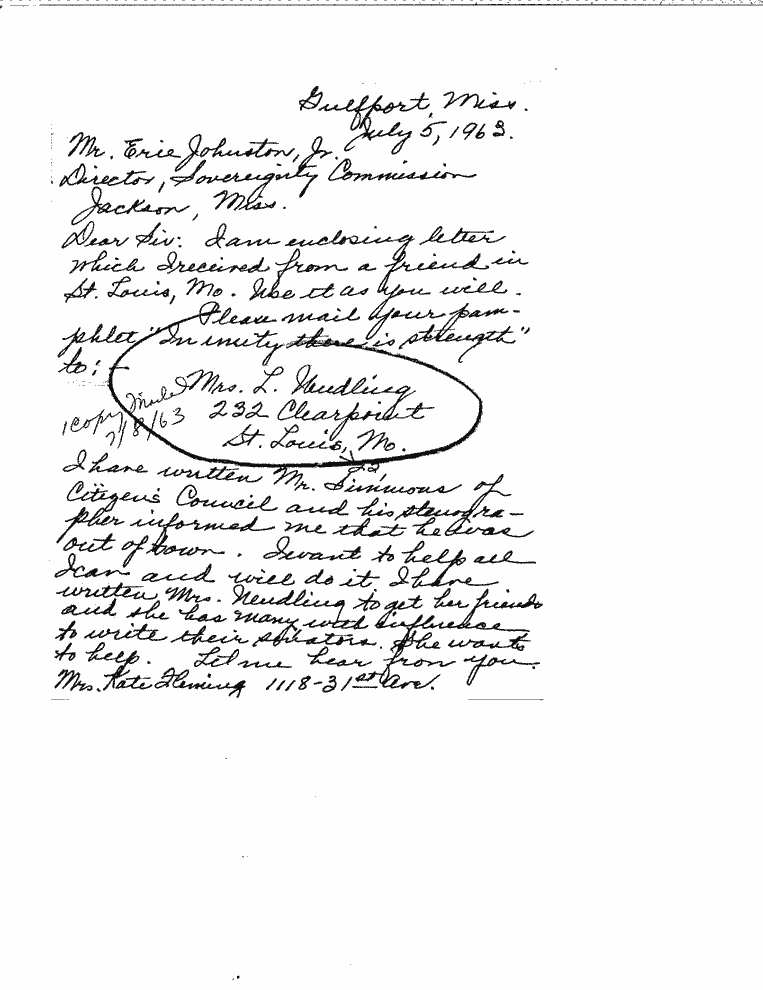 Gulfport, Miss.
July 5, 1963.
Mr. Erie Johnston, Jr.
Director, Sovereignty Commission
Jackson, Miss.
Dear Sir: I am enclosing letter
which I received from a friend in
St. Louis, Mo. Use it as you will.
Please mail your pam-
phlet "In unity there is strength"
to: -
Mrs. L. Neudling
232 Clearpoint
St. Louis, Mo.
1 copy mailed
7/18/63
I have written Mr. Simmons of
Citizen's Council and his stenogra-
pher informed me that he was
out of town. I want to help all
I can and will do it. I have
written Mrs. Neudling to get her friends
and she has many with influence
to write their senators. She wants
to help. Let me hear from you.
Mrs. Kate Fleming 1118-31st Ave.